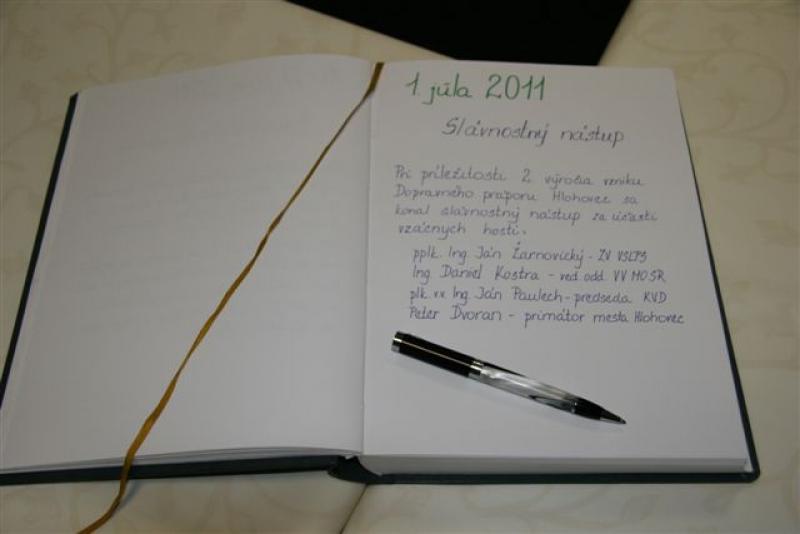 1. júla 2011
Slávnostný nástup
Pri príležitosti 2. výročia vzniku
Dopravného práporu Hlohovec sa
konal slávnostný nástup za účasti
vzácnych hostí.
pplk. Ing. Ján Žarnovický - ZV VSLPS
Ing. Daniel Kostra - ved. odd. VV MO SR
plk. v.v. Ing. Ján Paulech - predseda KVD
Peter Dvoran - primátor mesta Hlohovec